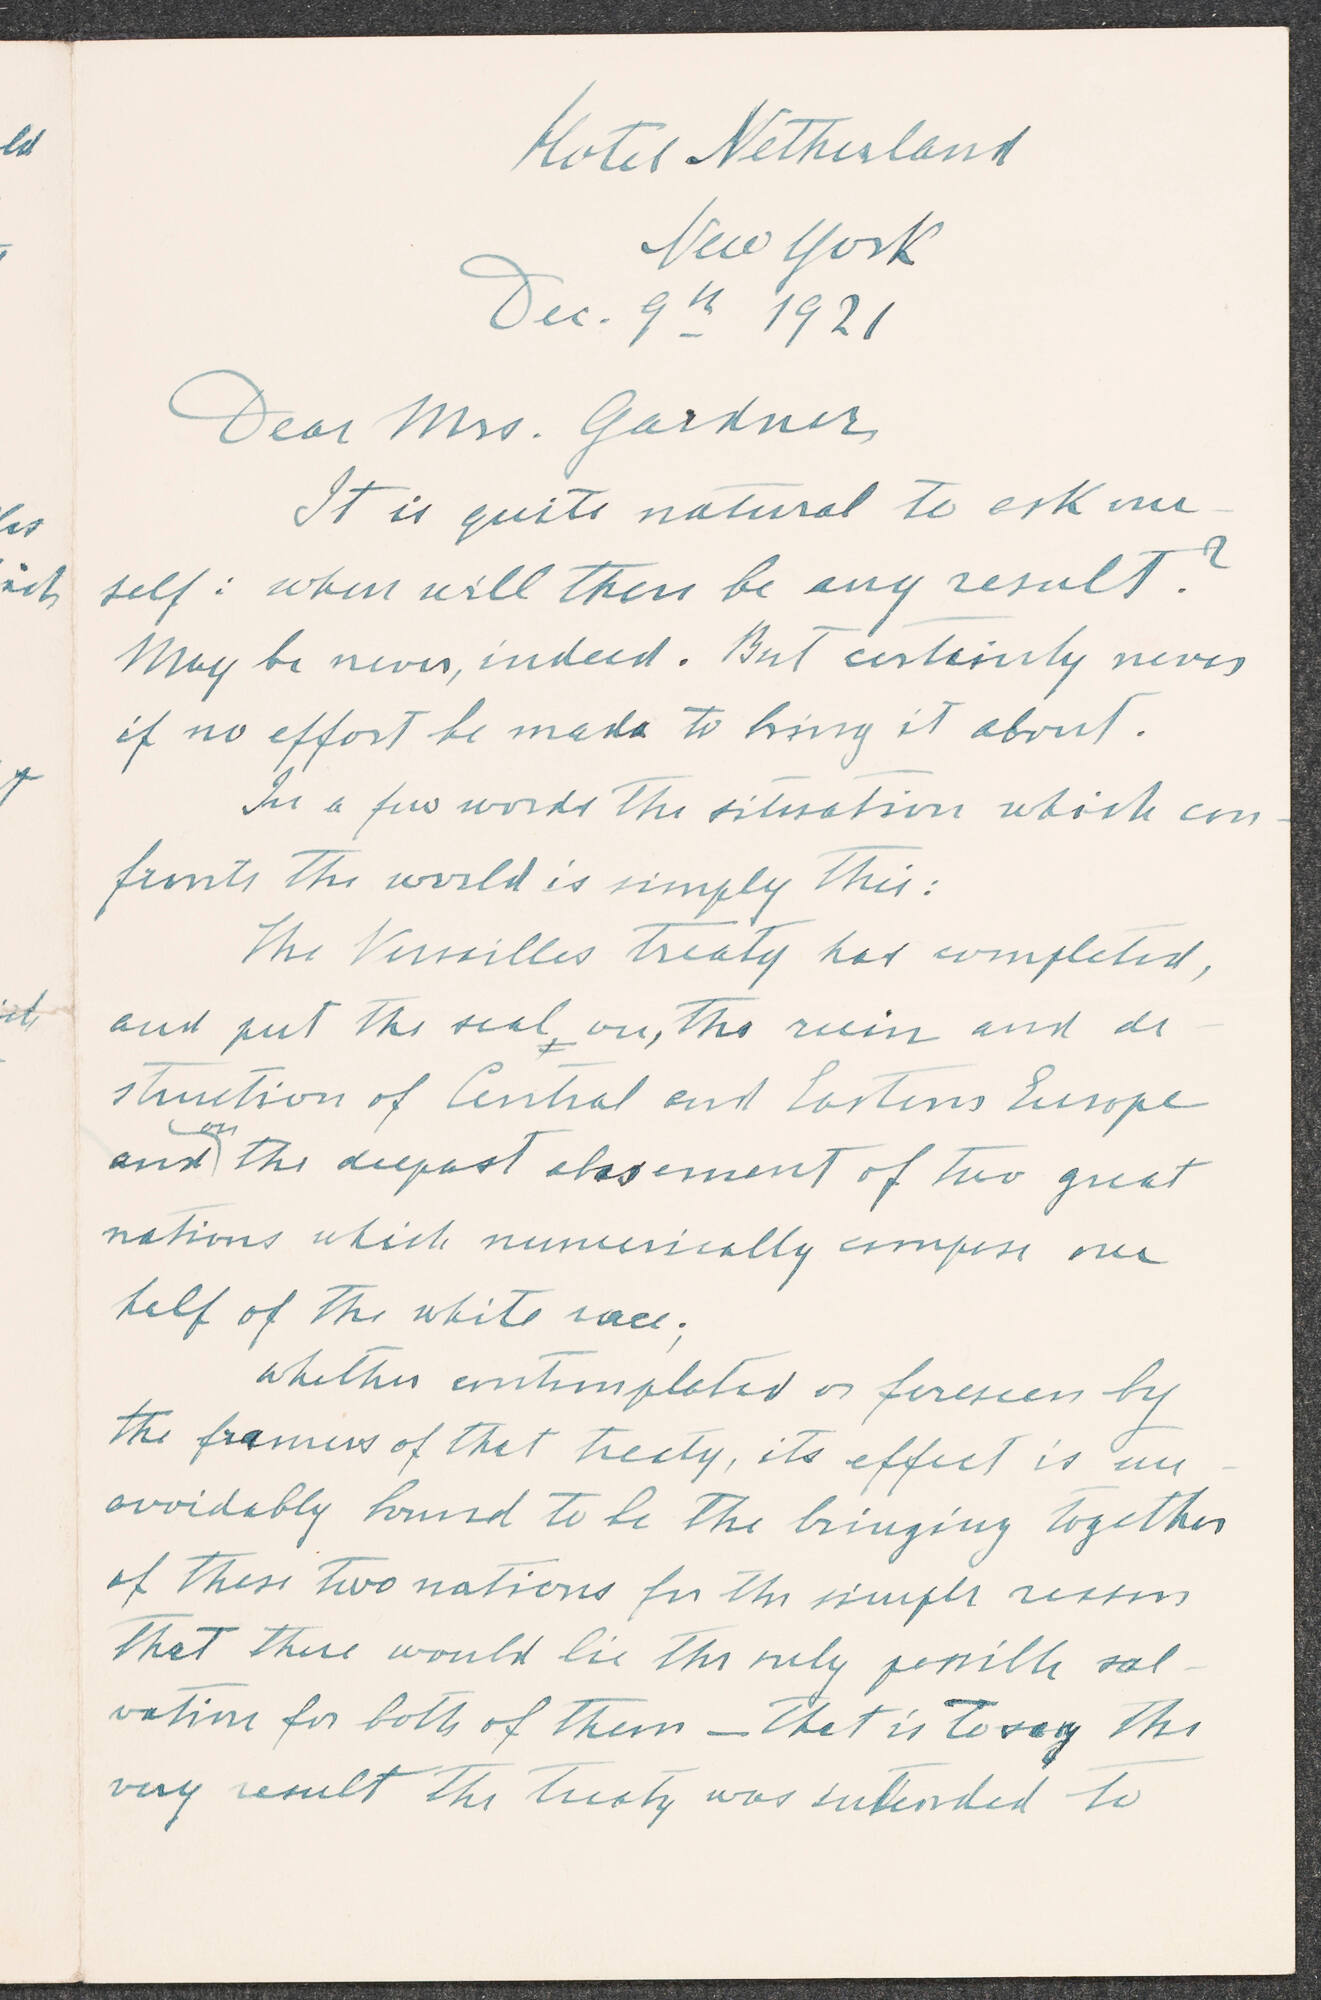 Hotel Netherland
New York
Dec. 9th 1921
Dear Mrs. Gardner,
It is quite natural to ask one-
self: when will there be any result?
May be never, indeed. But certainly never
if no effort be made to bring it about.
In a few words the situation which con-
fronts the world is simply this:
The Versailles treaty has completed,
and put the seal, on, the ruin and de-
struction of Central and Eastern Europe
and on the deepest abasement of two great
nations which numerically compose one
half of the white race;
whether contemplated or foreseen by
the framers of that treaty, its effect is un-
avoidably bound to be the bringing together
of these two nations for the simple reason
that there would lie the only possible sal-
vation for both of them — that is to say the
very result the treaty was intended to